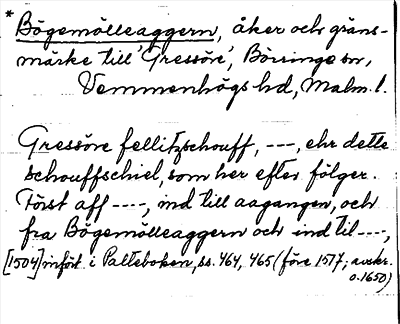 * Bögemölleaggern, åker och gräns-
märke till 'Gressöre', Börringe sn,
Vemmenhögs hd, Malm. l.
Gressöre fellitzschouff, ---, ehr dette
schouffschiel, som her efter fölger.
Först aff ----, ind till aagangen, och
fra Bögemölleaggern och ind til ---,
[1504] infört i Palteboken, ss. 464, 465 (före 1517; avskr.
o. 1650)